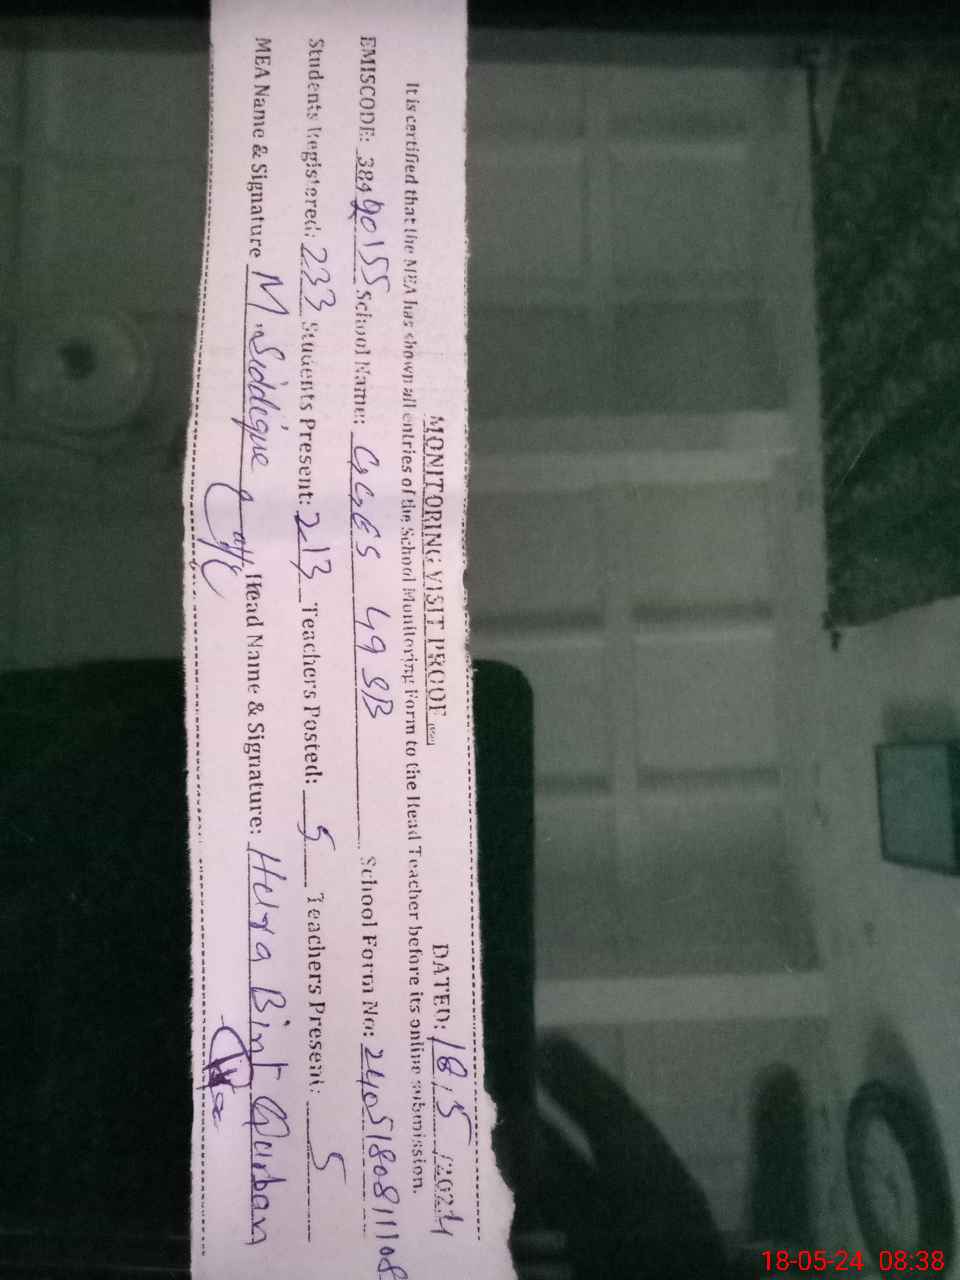 MONITORING VISIT PROOF DATED: 18/5/2024
It is certified that the MEA has shown all entries of the School Monitoring Form to the Head Teacher before its online submission.
EMISCODE: 38490155 School Name: GGES 49 SB School Form No: 240518081108
Students Registered: 233 Students Present: 213 Teachers Posted: 5 Teachers Present: 5
MEA Name & Signature M. Siddique Head Name & Signature: Hidra Bint Qurban
18-05-24 08:38